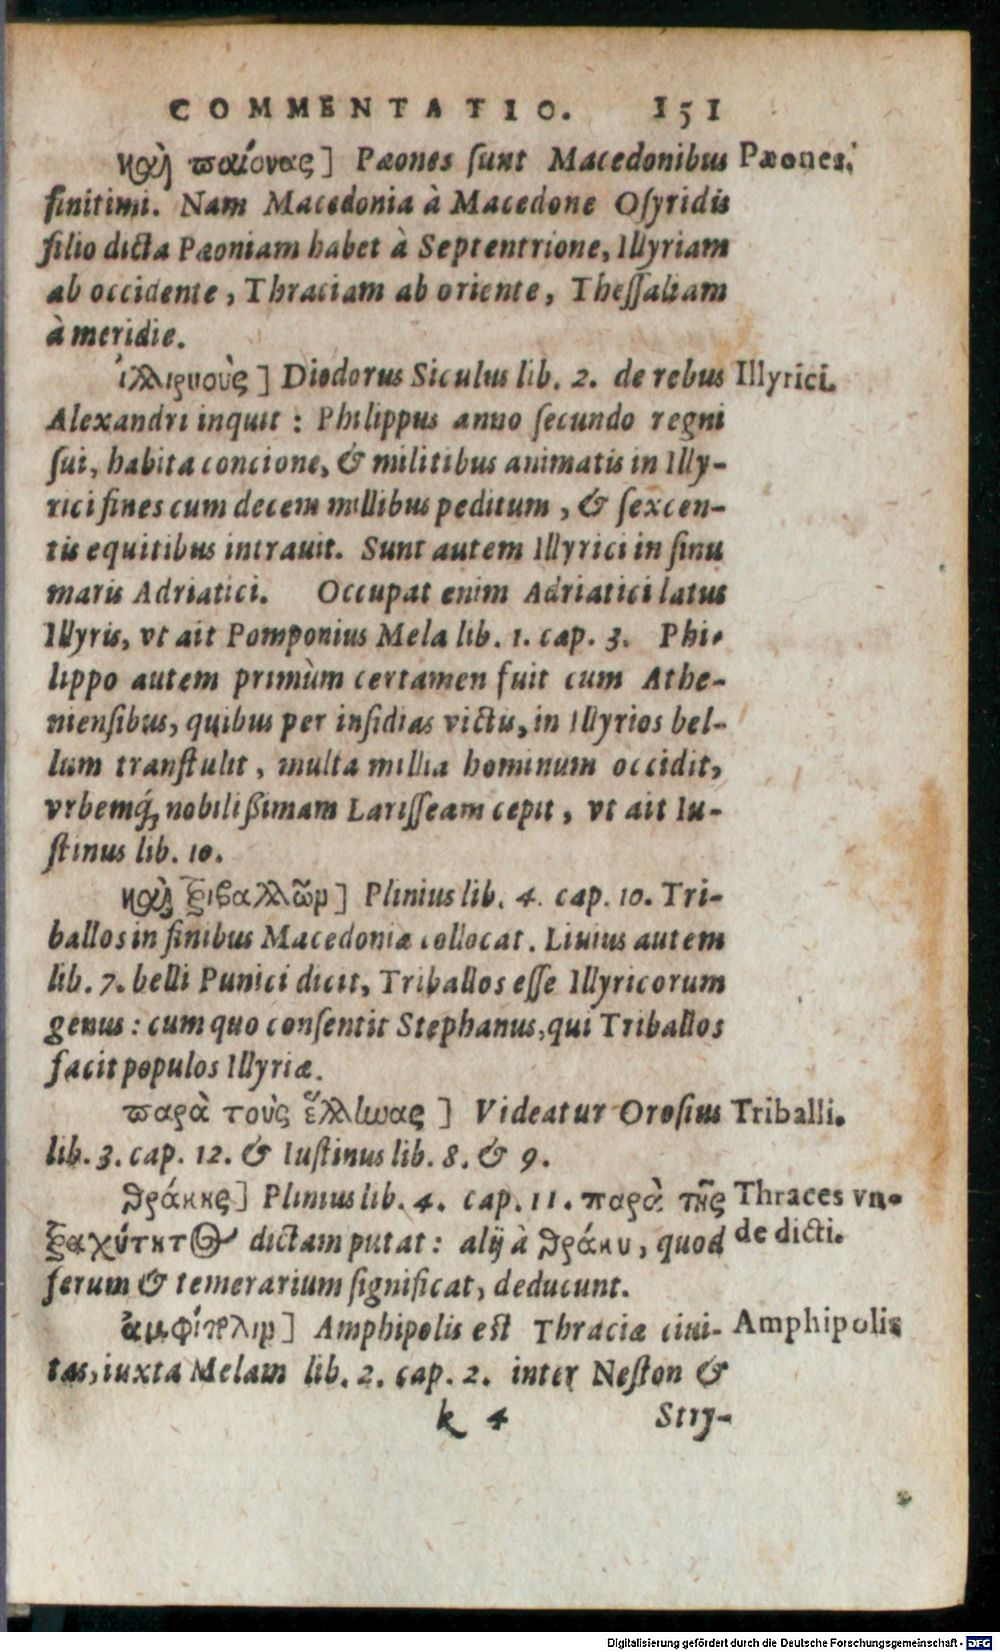 COMMENTATIO. 151
καὶ παίονας] Pæones ſunt Macedonibus Pæones.
finitimi. Nam Macedonia à Macedone Oſyridis
filio dicta Pæoniam habet à Septentrione, Illyriam
ab occidente, Thraciam ab oriente, Theſſaliam
à meridie.
ἰλλιρυοὺς] Diodorus Siculus lib. 2. de rebus Illyrici.
Alexandri inquit : Philippus anno ſecundo regni
ſui, habita concione, & militibus animatis in Illy-
rici fines cum decem millibus peditum, & ſexcen-
tis equitibus intrauit. Sunt autem Illyrici in ſinu
maris Adriatici. Occupat enim Adriatici latus
Illyris, vt ait Pomponius Mela lib. 1. cap. 3. Phi-
lippo autem primùm certamen fuit cum Athe-
nienſibus, quibus per inſidias victis, in Illyrios bel-
lum tranſtulit, multa millia hominum occidit,
vrbemq́; nobilißimam Lariſſeam cepit, vt ait Iu-
ſtinus lib. 10.
καὶ τριβαλλῶν] Plinius lib. 4. cap. 10. Tri-
ballos in finibus Macedoniæ collocat. Liuius autem
lib. 7. belli Punici dicit, Triballos eſſe Illyricorum
genus : cum quo conſentit Stephanus, qui Triballos
facit populos Illyriæ.
παρὰ τοὺς ἕλλίωας] Videatur Oroſius Triballi.
lib. 3. cap. 12. & Iuſtinus lib. 8. & 9.
θράκης] Plinius lib. 4. cap. 11. παρὰ τῆς Thraces vn-
τραχύτητος dictam putat : alij à θράκυ, quod de dicti.
ferum & temerarium ſignificat, deducunt.
ἀμφίπολιν] Amphipolis eſt Thraciæ ciui- Amphipolis
tas, iuxta Melam lib. 2. cap. 2. inter Neſton &
k 4 Stry-
Digitalisierung gefördert durch die Deutsche Forschungsgemeinschaft - DFG